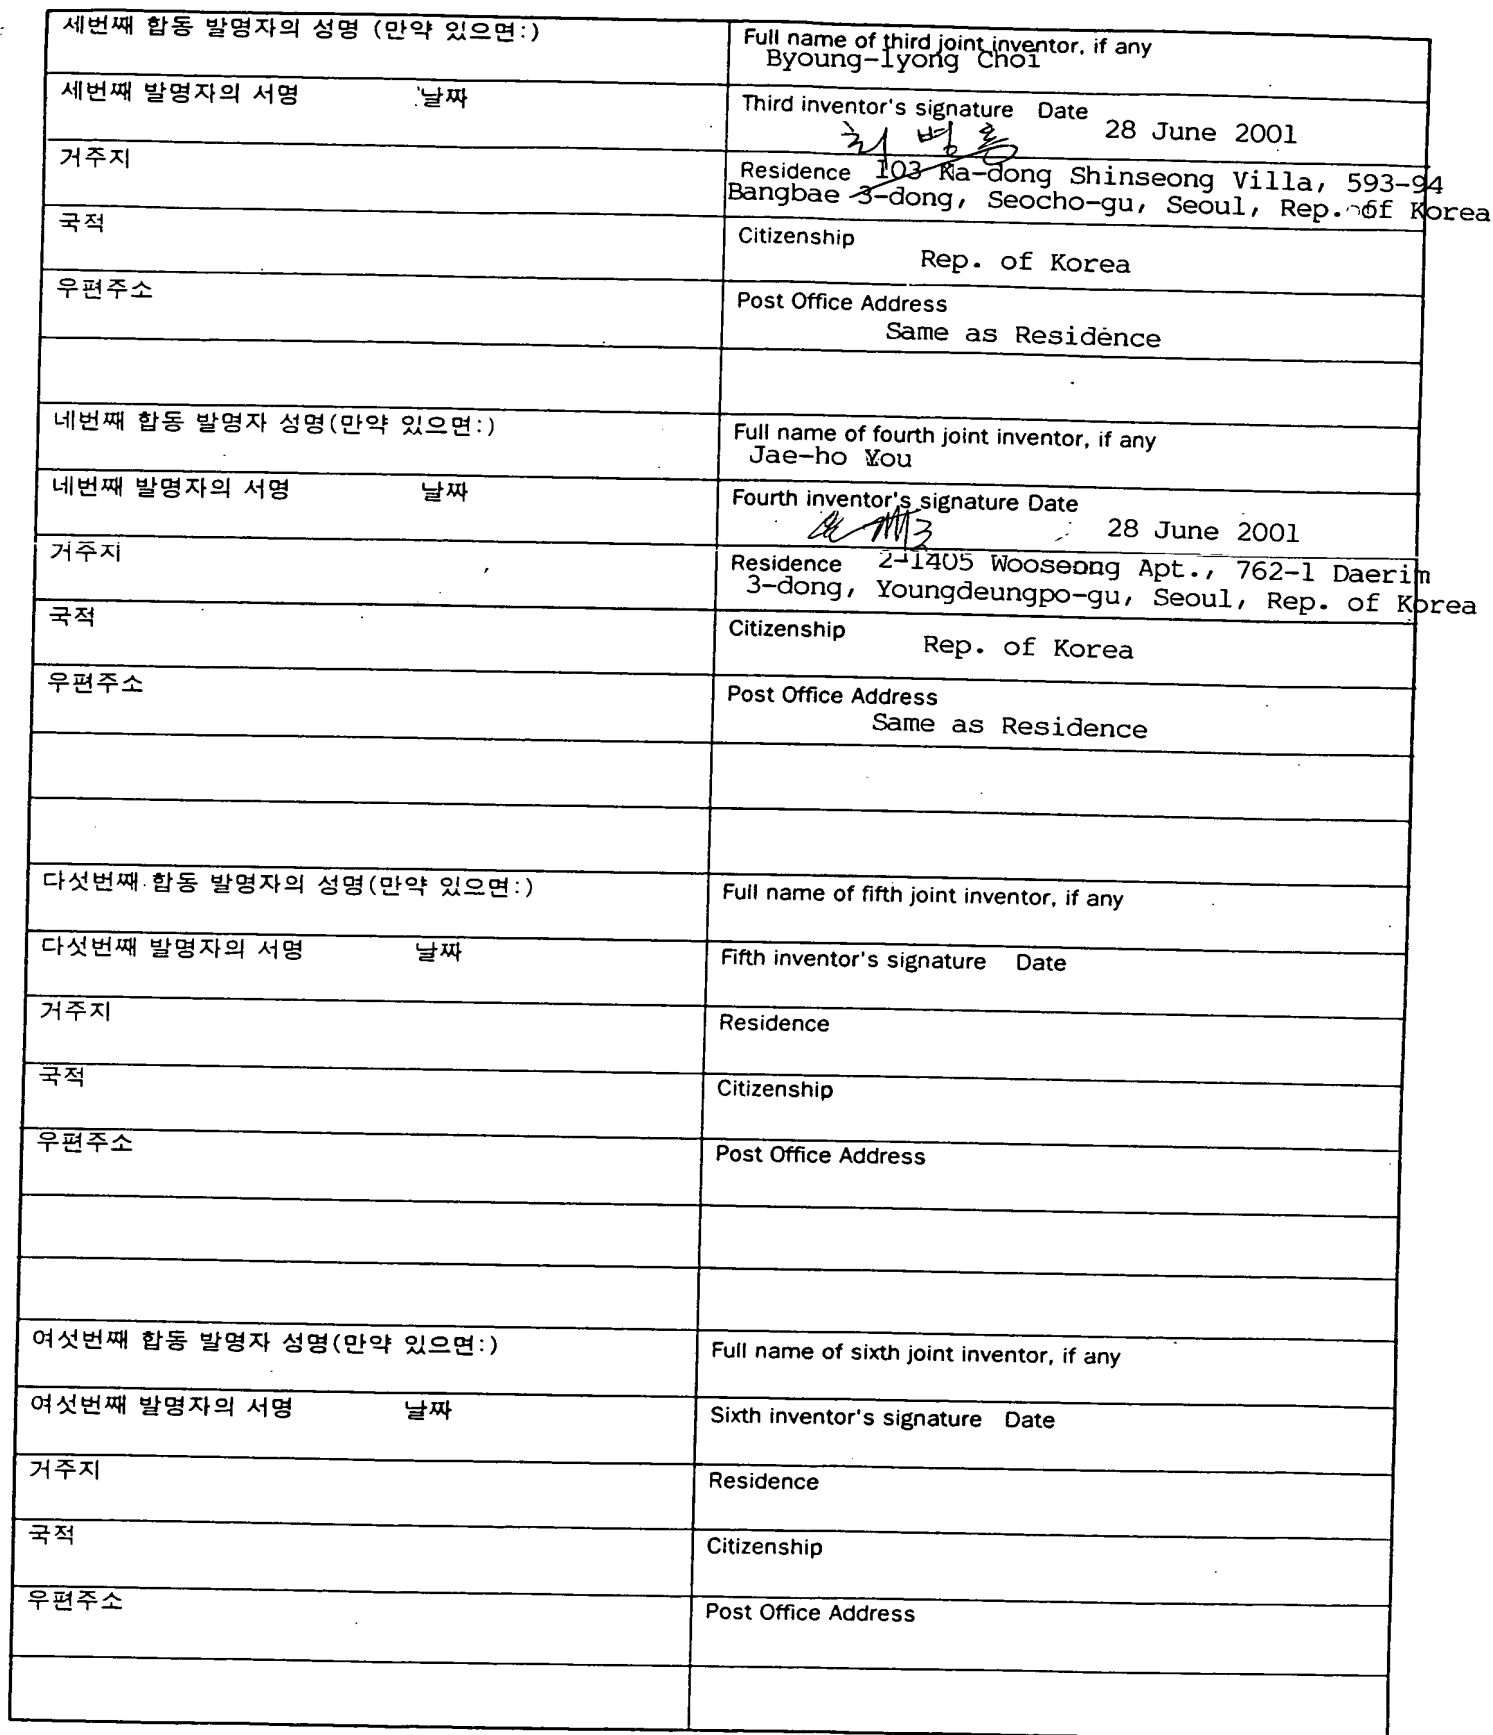 세번째 합동 발명자의 성명 (만약 있으면:)
Full name of third joint inventor, if any
Byoung-lyong Choi
세번째 발명자의 서명 날짜
Third inventor's signature Date
최 병 룡 28 June 2001
거주지
Residence 103 Ka-dong Shinseong Villa, 593-94
Bangbae 3-dong, Seocho-gu, Seoul, Rep. of Korea
국적
Citizenship
Rep. of Korea
우편주소
Post Office Address
Same as Residence
네번째 합동 발명자 성명(만약 있으면:)
Full name of fourth joint inventor, if any
Jae-ho You
네번째 발명자의 서명 날짜
Fourth inventor's signature Date
28 June 2001
거주지
Residence 2-1405 Wooseong Apt., 762-1 Daerim
3-dong, Youngdeungpo-gu, Seoul, Rep. of Korea
국적
Citizenship Rep. of Korea
우편주소
Post Office Address
Same as Residence
다섯번째 합동 발명자의 성명(만약 있으면:)
Full name of fifth joint inventor, if any
다섯번째 발명자의 서명 날짜
Fifth inventor's signature Date
거주지
Residence
국적
Citizenship
우편주소
Post Office Address
여섯번째 합동 발명자 성명(만약 있으면:)
Full name of sixth joint inventor, if any
여섯번째 발명자의 서명 날짜
Sixth inventor's signature Date
거주지
Residence
국적
Citizenship
우편주소
Post Office Address